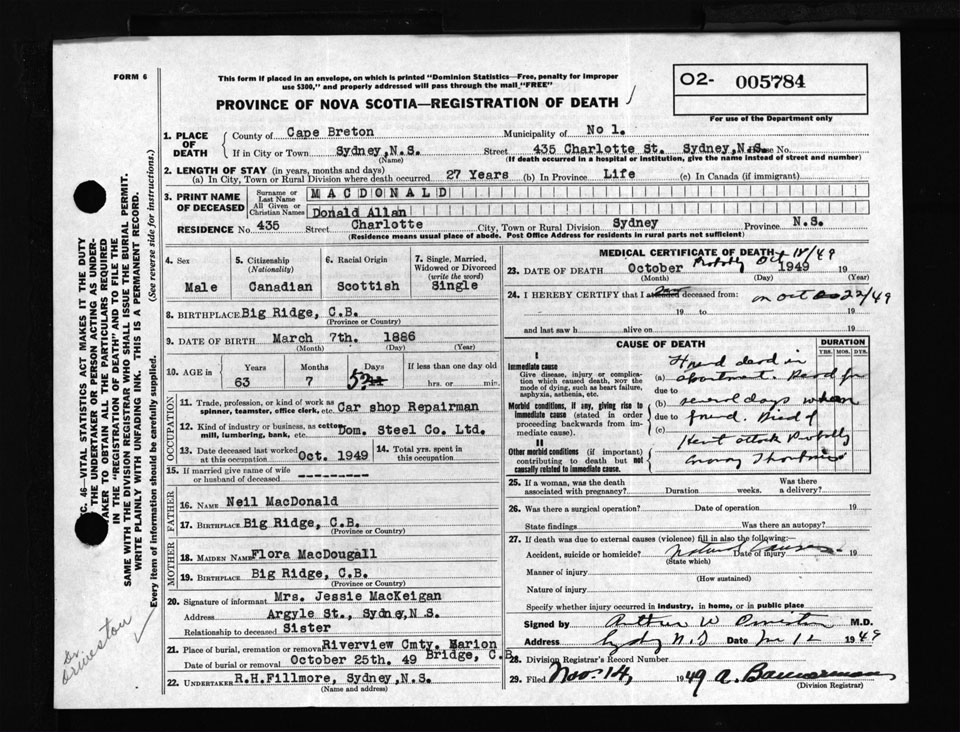 FORM 6
This form if placed in an envelope, on which is printed "Dominion Statistics—Free, penalty for improper
use $300," and properly addressed will pass through the mail "FREE"
PROVINCE OF NOVA SCOTIA—REGISTRATION OF DEATH
O2- 005784
For use of the Department only
1. PLACE OF DEATH
County of Cape Breton Municipality of No 1.
If in City or Town Sydney, N.S. Street 435 Charlotte St. Sydney, N.S. House No.
(Name) (If death occurred in a hospital or institution, give the name instead of street and number)
2. LENGTH OF STAY (in years, months and days)
(a) In City, Town or Rural Division where death occurred 27 Years (b) In Province Life (c) In Canada (if immigrant)
3. PRINT NAME OF DECEASED
Surname or Last Name MACDONALD
All Given or Christian Names Donald Allan
RESIDENCE No. 435 Street Charlotte City, Town or Rural Division Sydney Province N.S.
(Residence means usual place of abode. Post Office Address for residents in rural parts not sufficient)
4. Sex Male
5. Citizenship (Nationality) Canadian
6. Racial Origin Scottish
7. Single, Married, Widowed or Divorced (write the word) Single
8. BIRTHPLACE Big Ridge, C.B.
(Province or Country)
9. DATE OF BIRTH March 7th. 1886
(Month) (Day) (Year)
10. AGE in Years 63 Months 7 Days If less than one day old hrs. or min.
OCCUPATION
11. Trade, profession, or kind of work as spinner, teamster, office clerk, etc. Car shop Repairman
12. Kind of industry or business, as cotton mill, lumbering, bank, etc. Dom. Steel Co. Ltd.
13. Date deceased last worked at this occupation Oct. 1949
14. Total yrs. spent in this occupation
15. If married give name of wife or husband of deceased
FATHER
16. NAME Neil MacDonald
17. BIRTHPLACE Big Ridge, C.B.
(Province or Country)
MOTHER
18. MAIDEN NAME Flora MacDougall
19. BIRTHPLACE Big Ridge, C.B.
(Province or Country)
20. Signature of informant Mrs. Jessie MacKeigan
Address Argyle St., Sydney, N.S.
Relationship to deceased Sister
21. Place of burial, cremation or removal Riverview Cmty. Marion Bridge, C.B.
Date of burial or removal October 25th. 49
22. UNDERTAKER R.H.Fillmore, Sydney, N.S.
(Name and address)
MEDICAL CERTIFICATE OF DEATH
23. DATE OF DEATH October Probably Oct 18/49 1949 19
(Month) (Day) (Year)
24. I HEREBY CERTIFY that I attended saw deceased from: on Oct 22/49
19 to 19
and last saw h alive on 19
CAUSE OF DEATH
DURATION
YRS. MOS. DYS.
I
Immediate cause
Give disease, injury or complication which caused death, not the mode of dying, such as heart failure, asphyxia, asthenia, etc.
Morbid conditions, if any, giving rise to immediate cause (stated in order proceeding backwards from immediate cause).
II
Other morbid conditions (if important) contributing to death but not causally related to immediate cause.
(a) Found dead in apartment. Dead for
due to
(b) several days when
due to found. Died of
(c) Heart attack Probably
Coronary Thrombosis
25. If a woman, was the death associated with pregnancy? Duration weeks. Was there a delivery?
26. Was there a surgical operation? Date of operation 19
State findings Was there an autopsy?
27. If death was due to external causes (violence) fill in also the following:
Accident, suicide or homicide? Natural causes Date of injury 19
(State which)
Manner of injury
(How sustained)
Nature of injury
Specify whether injury occurred in industry, in home, or in public place
Signed by Arthur W Ormiston M.D.
Address Sydney N.S Date Nov 12 1949
28. Division Registrar's Record Number
29. Filed Nov. 14, 1949 A. Bannerman
(Division Registrar)
SEC. 46—VITAL STATISTICS ACT MAKES IT THE DUTY
OF THE UNDERTAKER OR PERSON ACTING AS UNDER-
TAKER TO OBTAIN ALL THE PARTICULARS REQUIRED
IN THE "REGISTRATION OF DEATH" AND TO FILE THE
SAME WITH THE DIVISION REGISTRAR WHO SHALL ISSUE THE BURIAL PERMIT.
WRITE PLAINLY WITH UNFADING INK. THIS IS A PERMANENT RECORD.
Every item of information should be carefully supplied. (See reverse side for instructions.)
Dr.
Ormiston